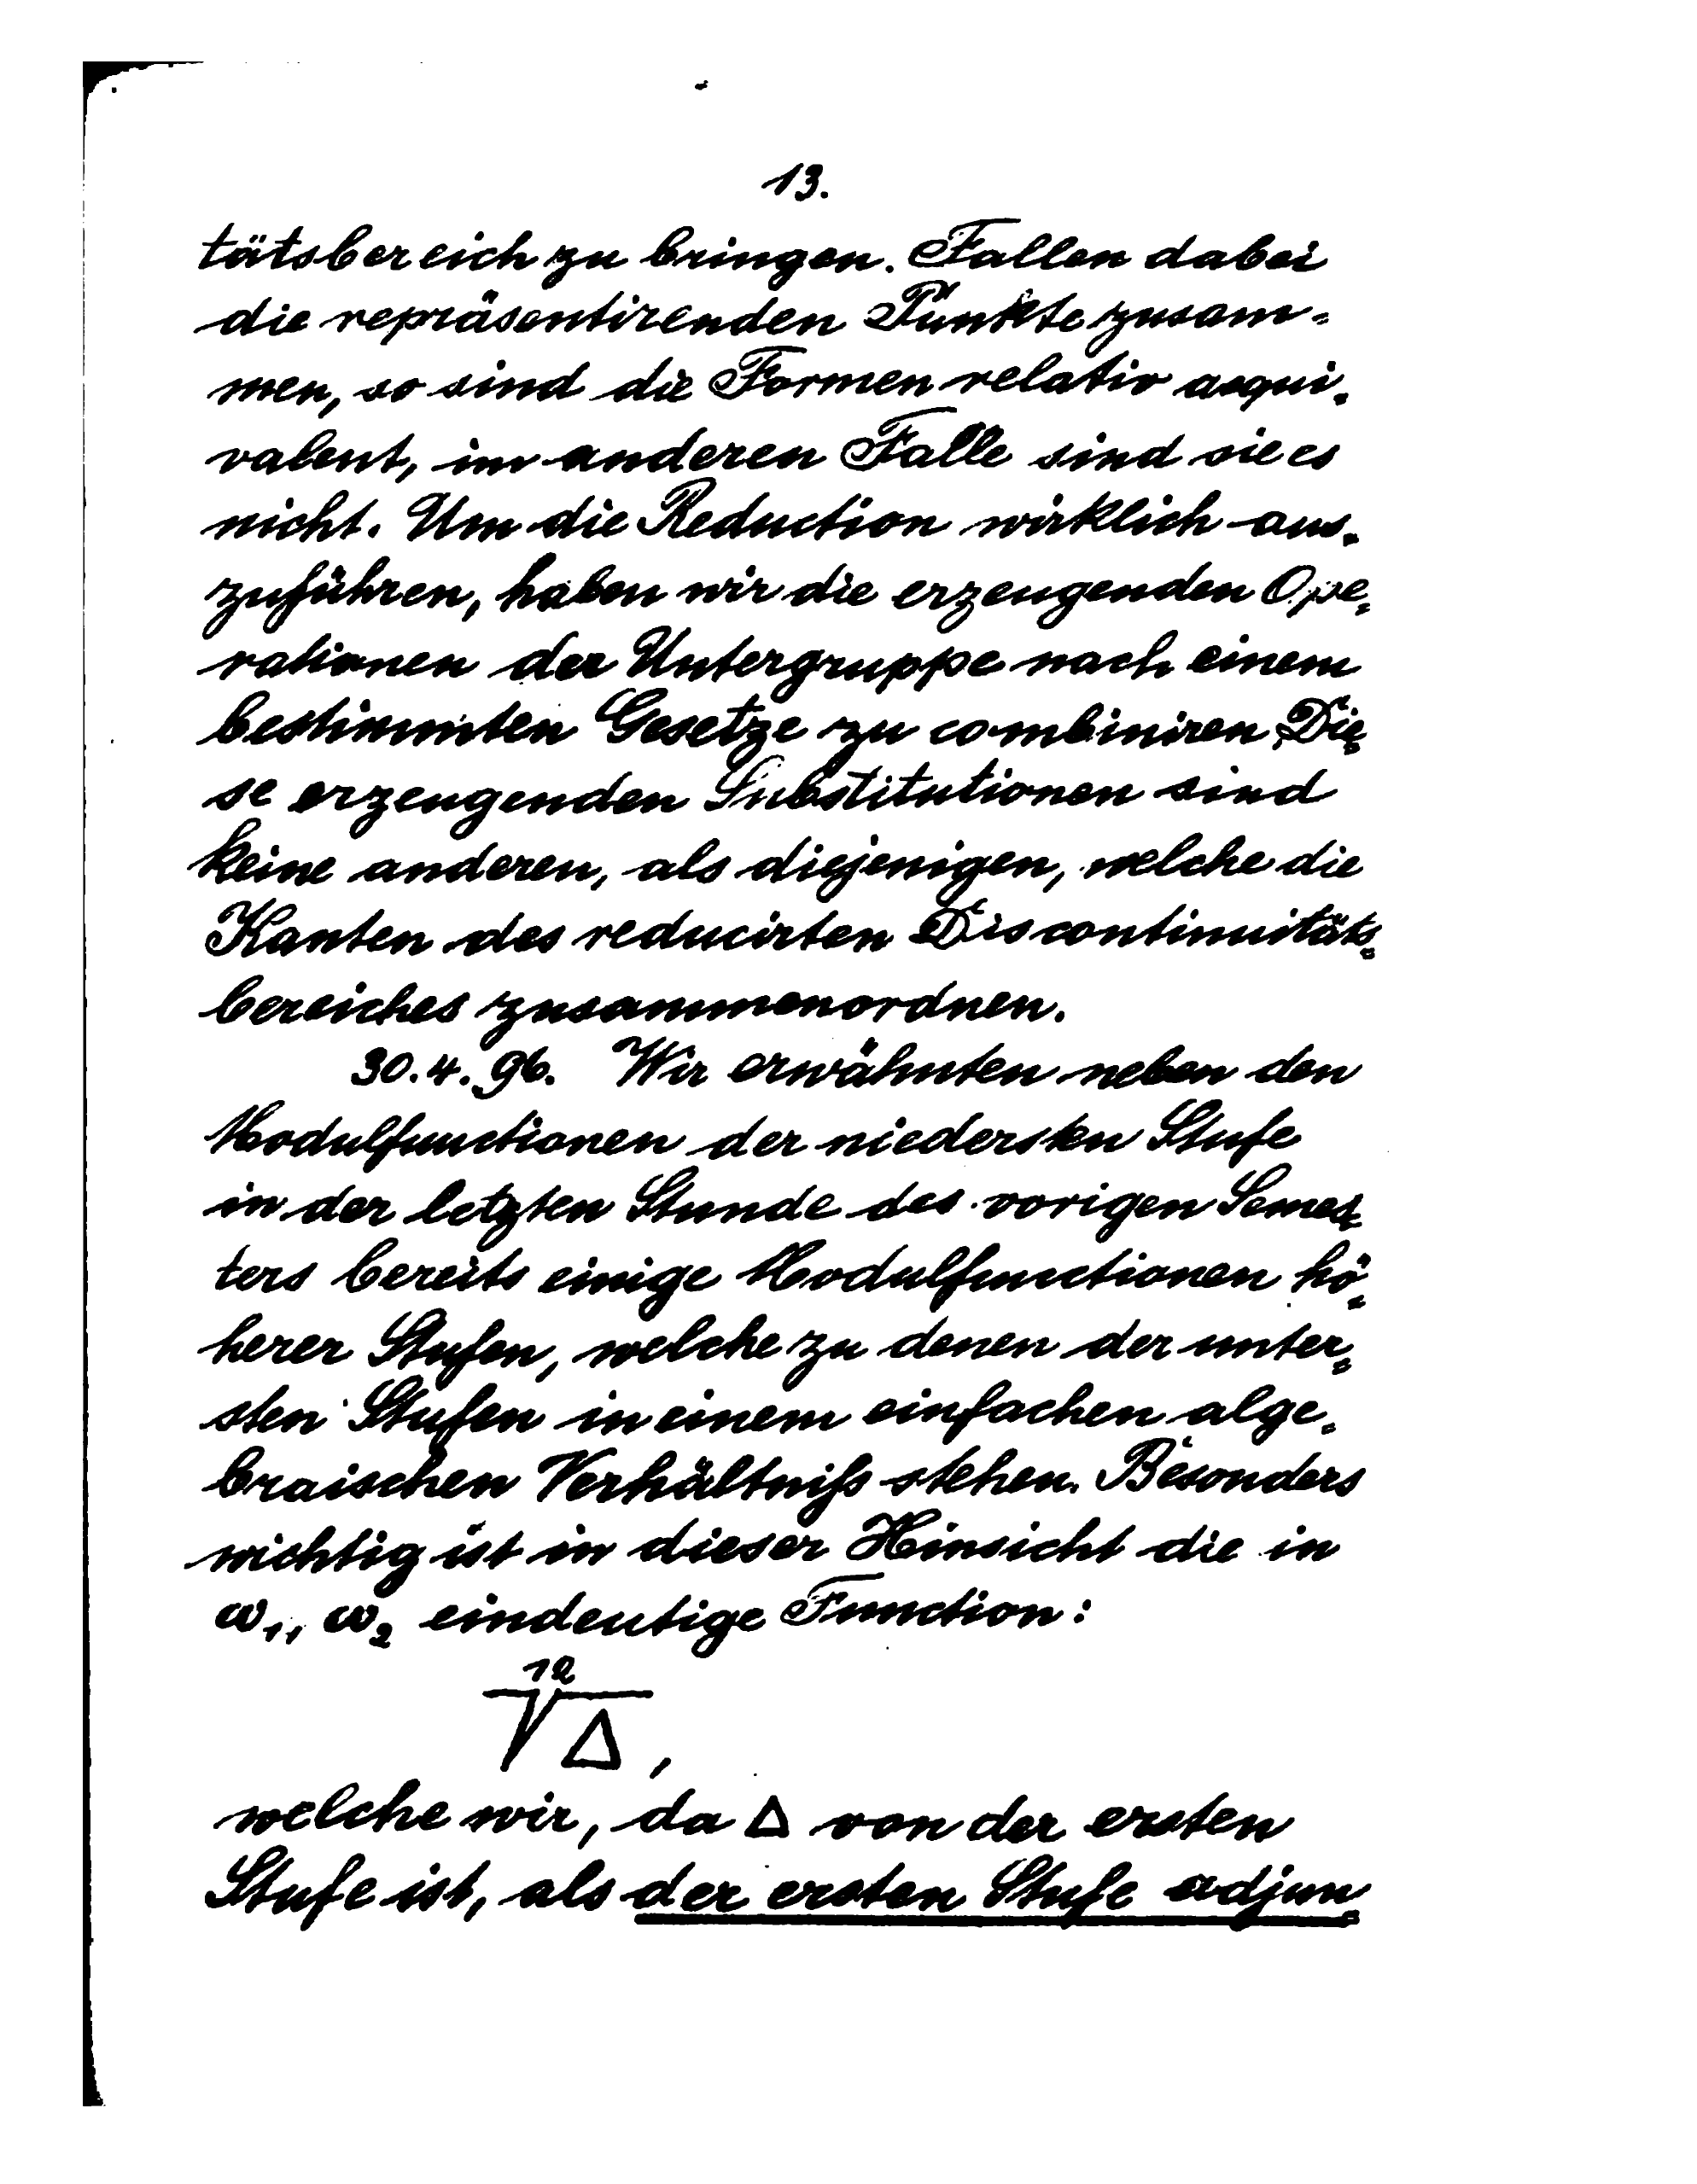 13.
tätsbereich zu bringen. Fallen dabei
die repräsentirenden Punkte zusam-
men, so sind die Formen relativ aequi-
valent, im anderen Falle sind sie es
nicht. Um die Reduction wirklich aus-
zuführen, haben wir die erzeugenden Ope-
rationen der Untergruppe nach einem
bestimmten Gesetze zu combiniren. Die-
se erzeugenden Substitutionen sind
keine anderen, als diejenigen, welche die
Kanten des reducirten Discontinuitäts-
bereiches zusammenordnen.
30.4.96. Wir erwähnten neben den
Modulfunctionen der niedersten Stufe
in der letzten Stunde des vorigen Semes-
ters bereits einige Modulfunctionen hö-
herer Stufen, welche zu denen der unter-
sten Stufen in einem einfachen alge-
braischen Verhältniſs stehen. Besonders
wichtig ist in dieser Hinsicht die in
ω₁, ω₂ eindeutige Function:
¹²√Δ,
welche wir, da Δ von der ersten
Stufe ist, als der ersten Stufe adjun-